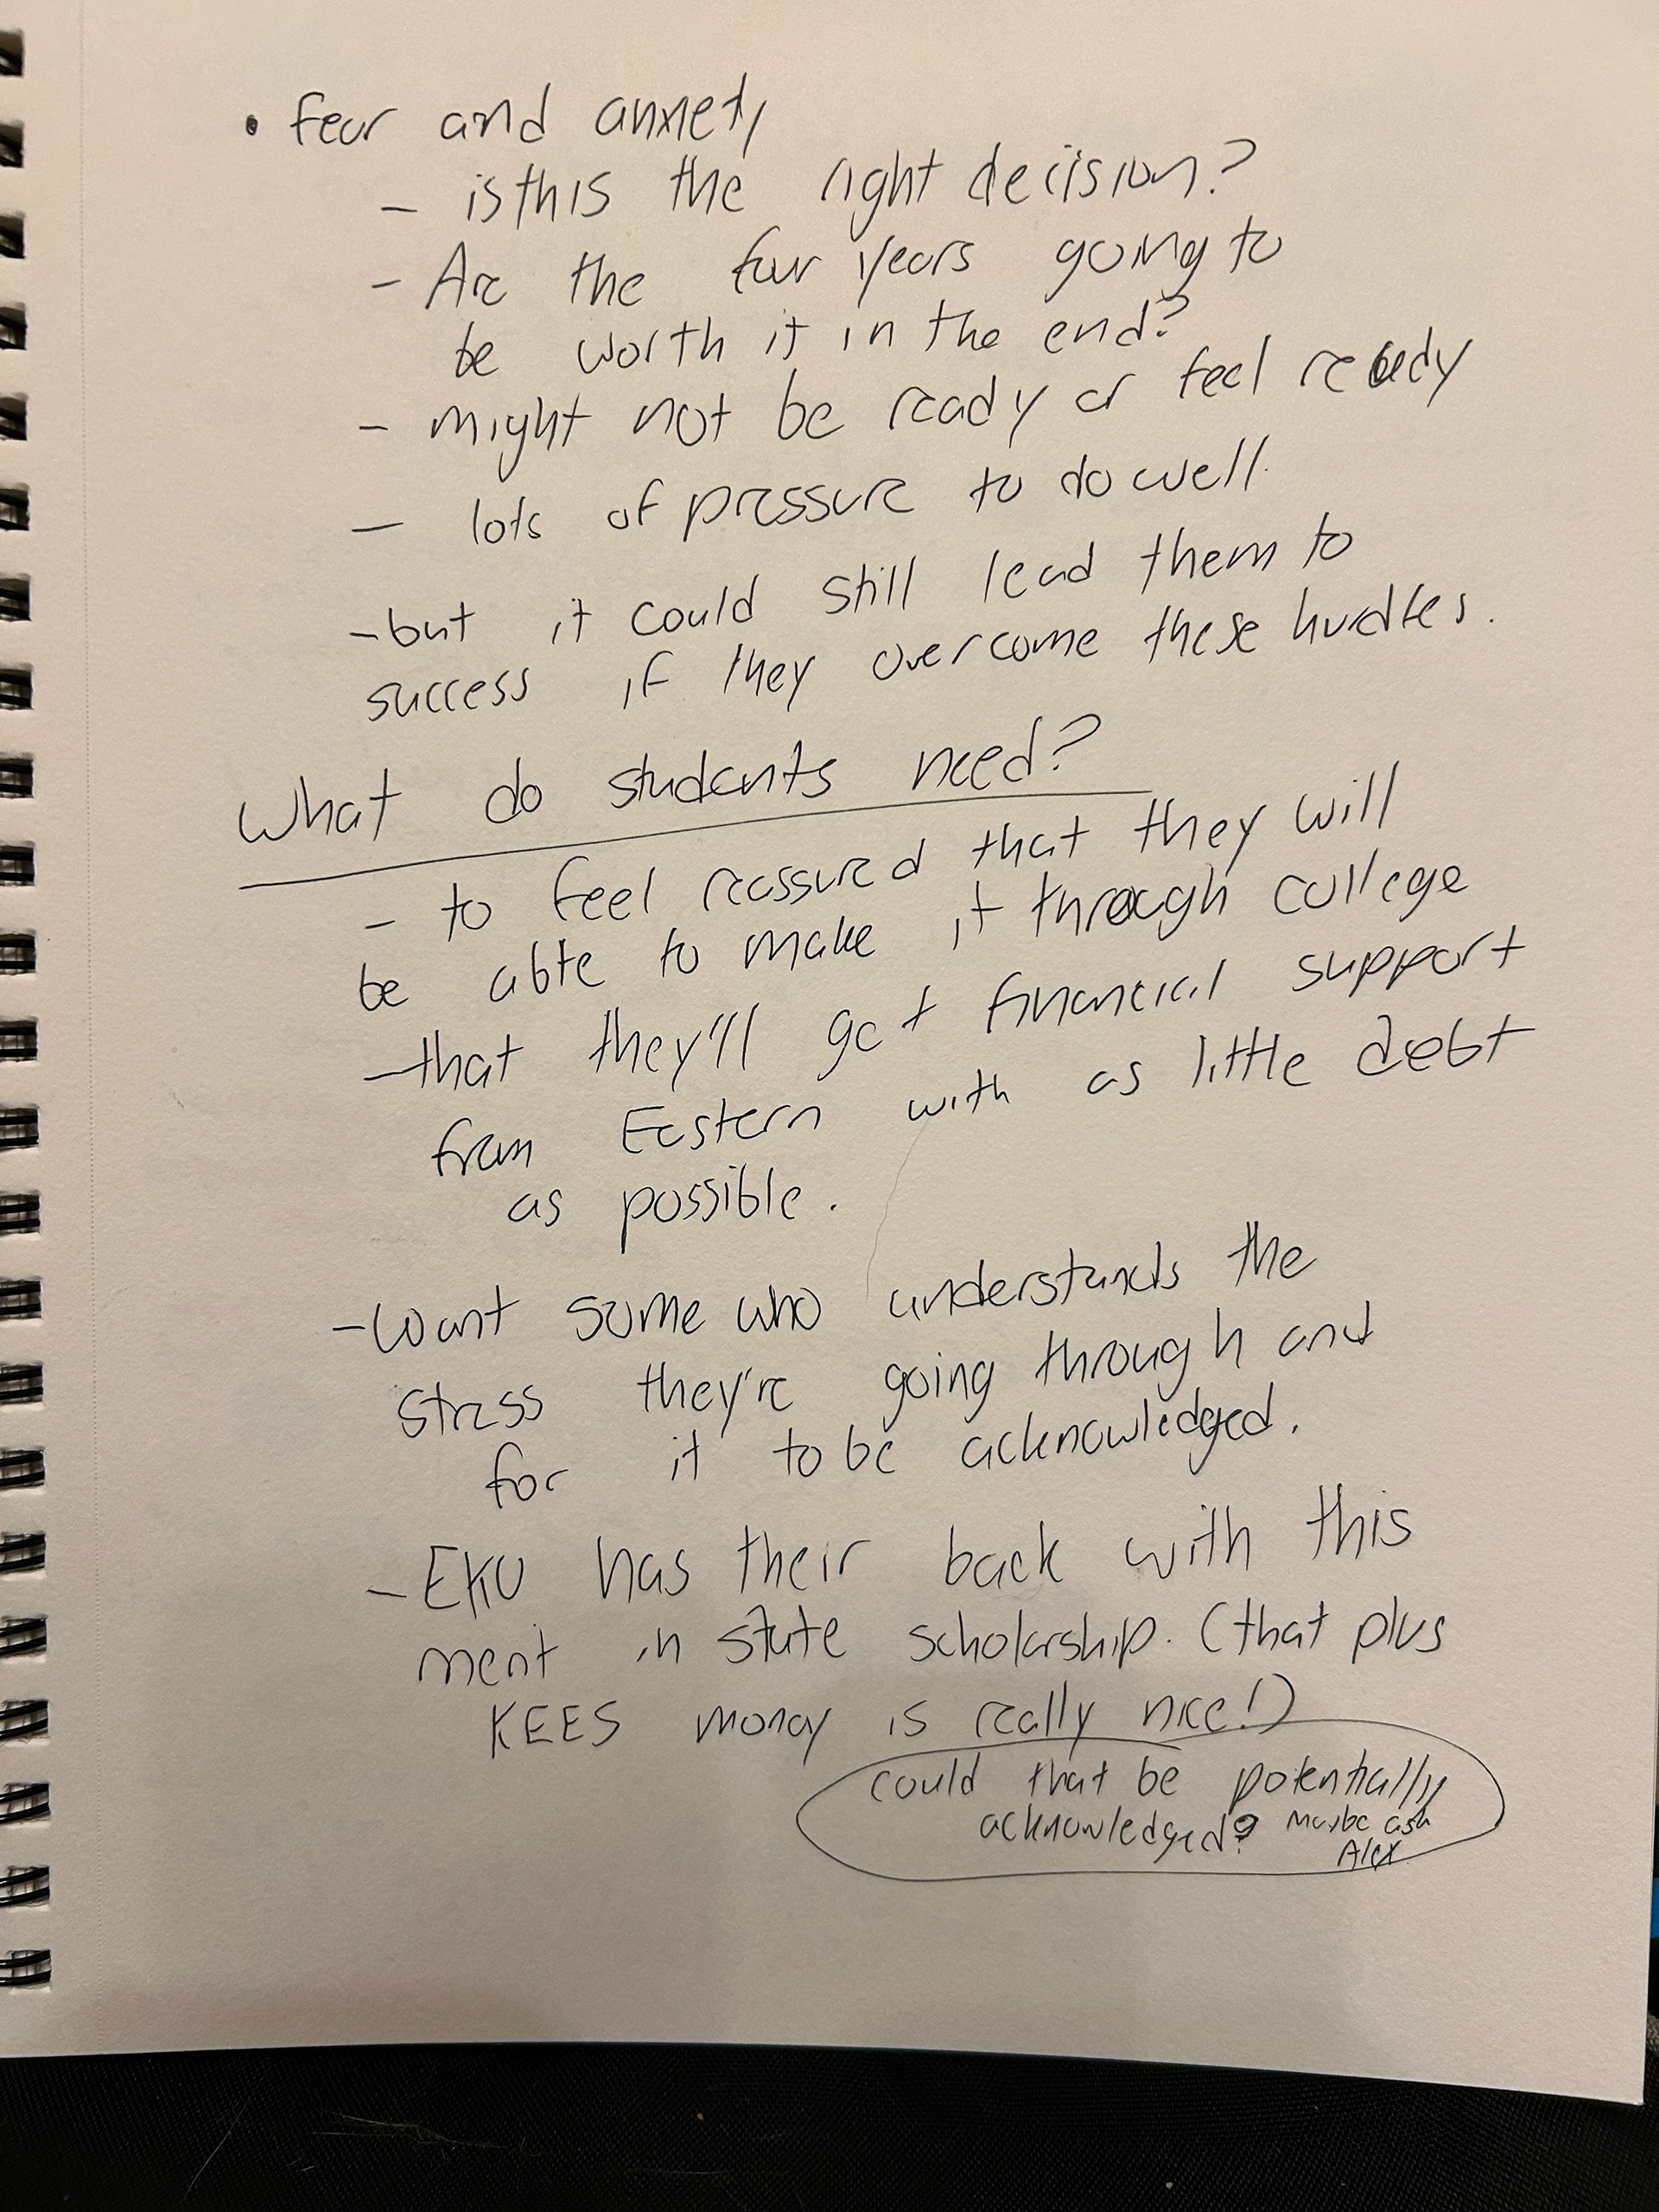 • fear and anxiety
- is this the right decision?
- Are the four years going to
be worth it in the end?
- might not be ready or feel ready
- lots of pressure to do well.
- but it could still lead them to
success if they overcome these hurdles.
What do students need?
- to feel reassured that they will
be able to make it through college
- that they'll get financial support
from Eastern with as little debt
as possible.
- Want some who understands the
stress they're going through and
for it to be acknowledged.
- EKU has their back with this
merit in state scholarship. (that plus
KEES money is really nice!)
could that be potentially
acknowledged? Maybe ask
Alex